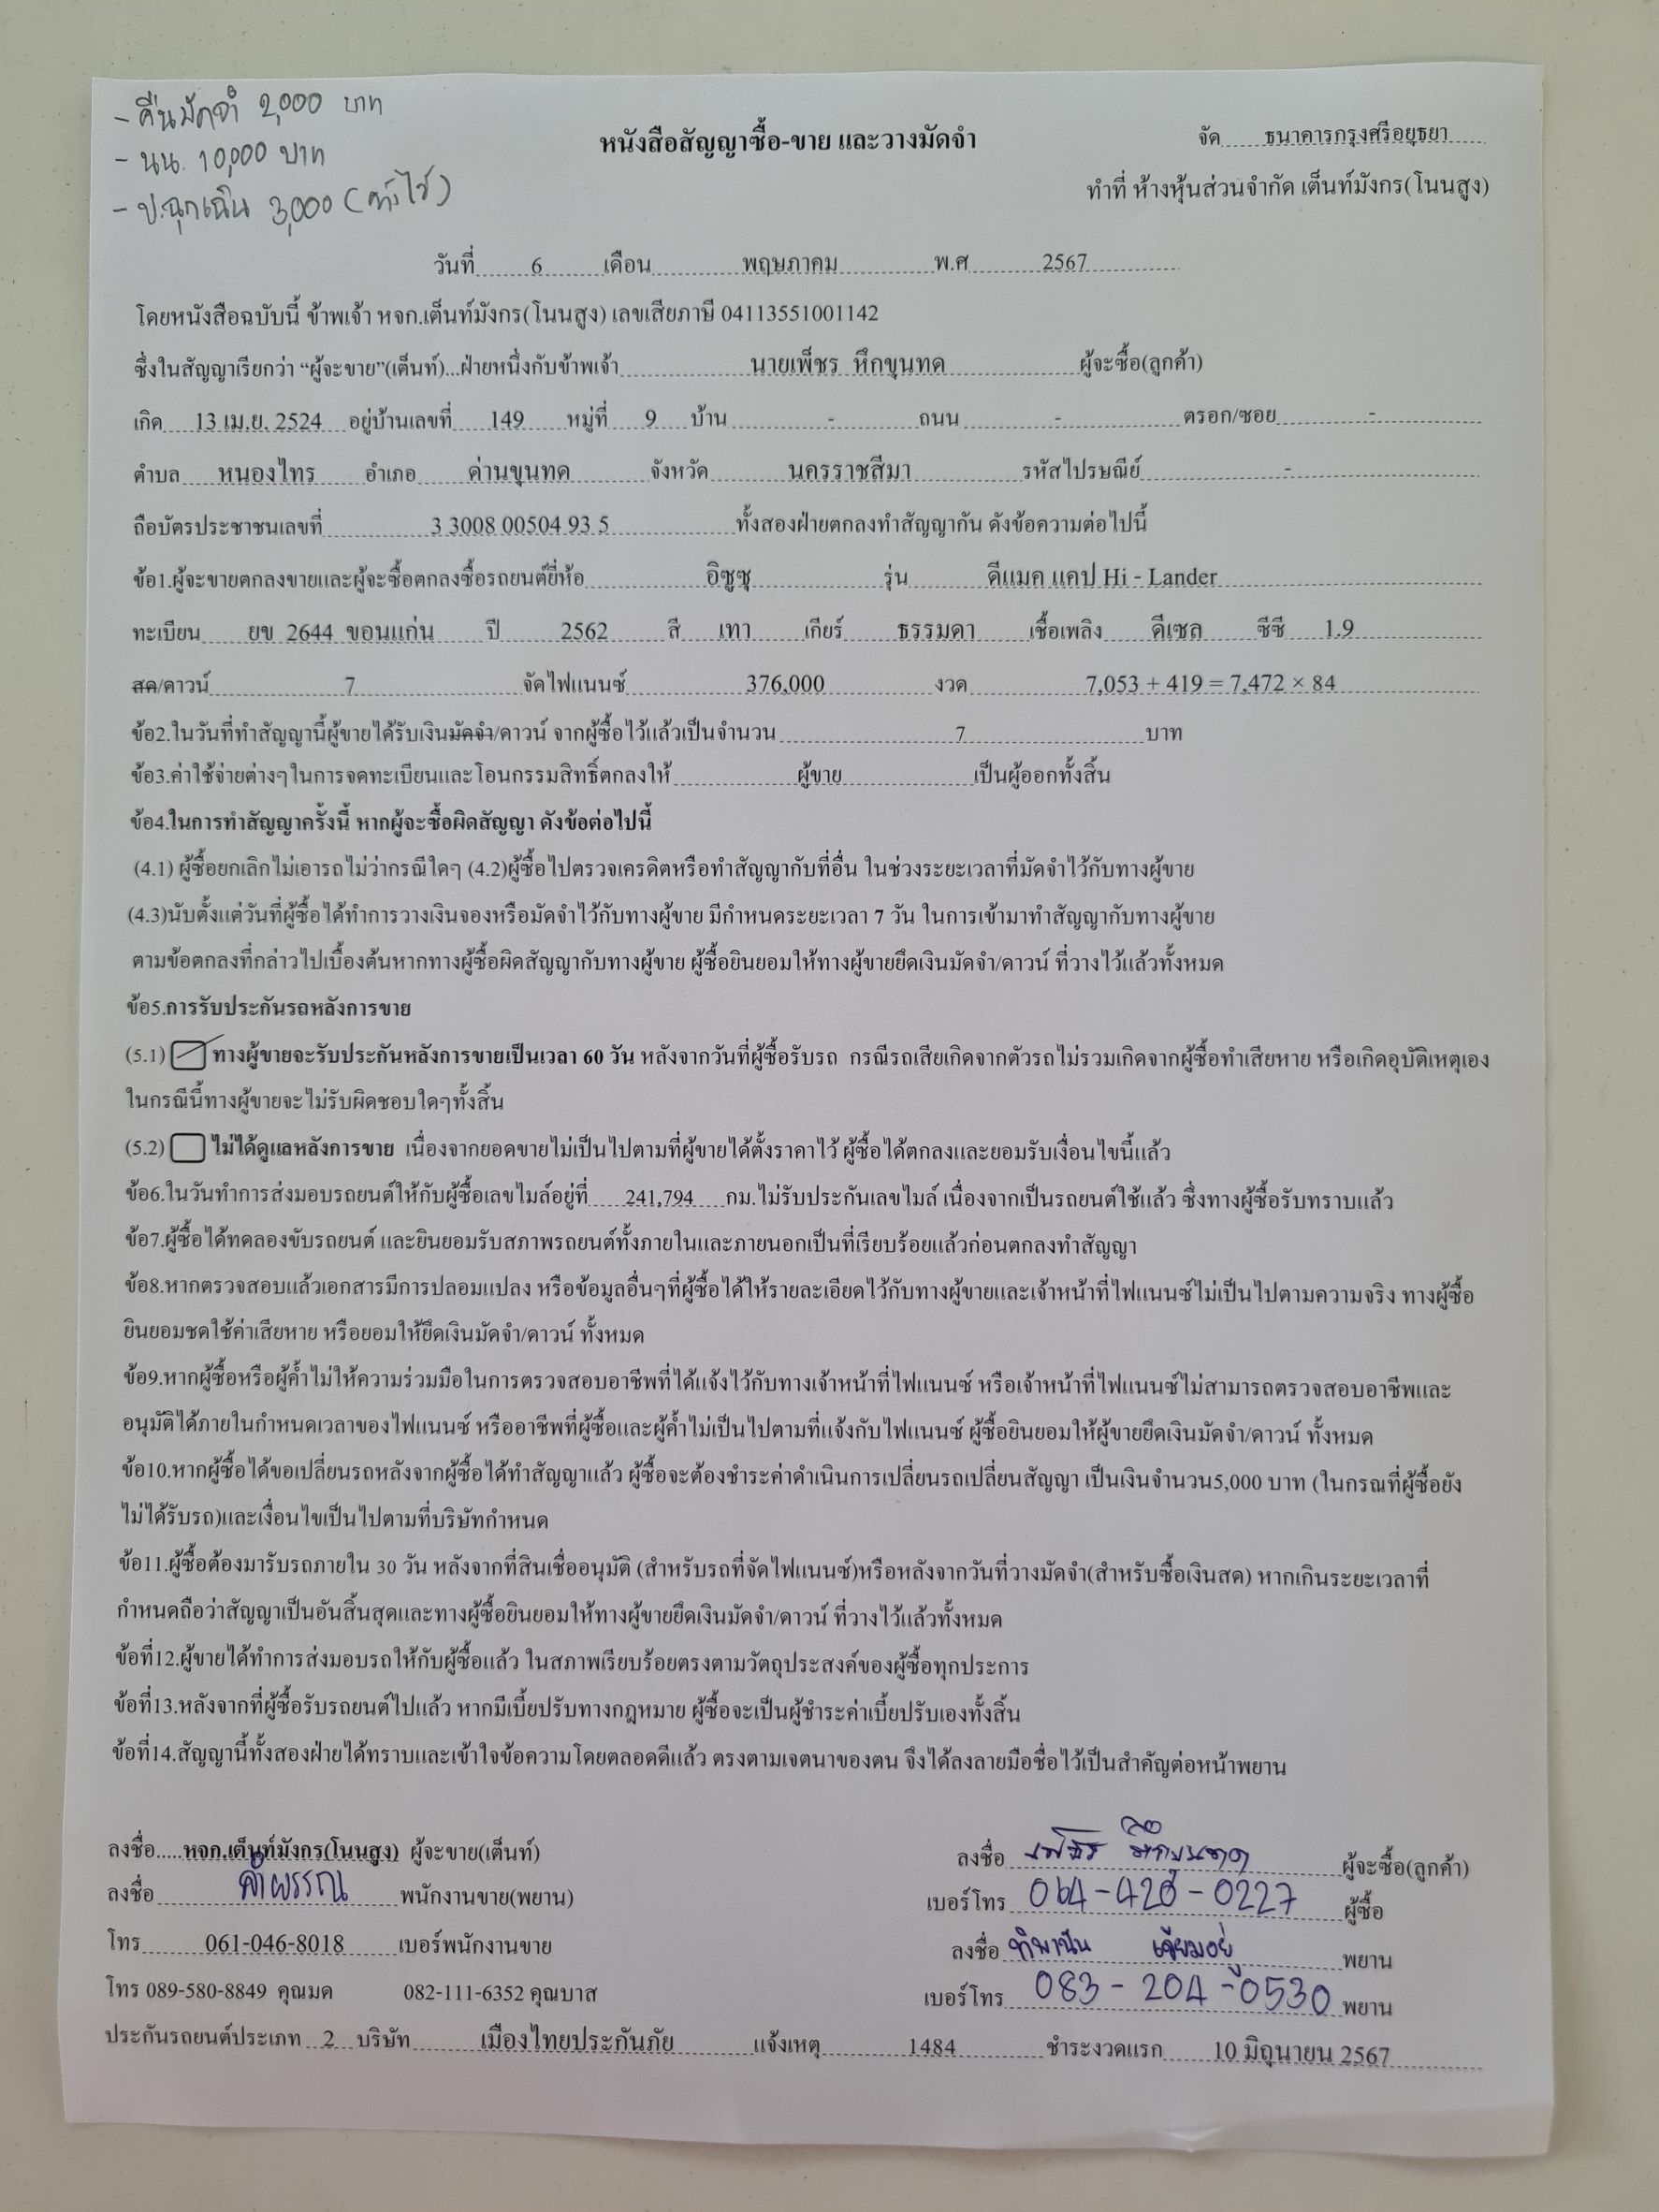 - คืนมัดจำ 2,000 บาท
- นน. 10,000 บาท
- ป.ฉุกเฉิน 3,000 (ค้างไว้)
หนังสือสัญญาซื้อ-ขาย และวางมัดจำ
จัด ธนาคารกรุงศรีอยุธยา
ทำที่ ห้างหุ้นส่วนจำกัด เต็นท์มังกร(โนนสูง)
วันที่ 6 เดือน พฤษภาคม พ.ศ 2567
โดยหนังสือฉบับนี้ ข้าพเจ้า หจก.เต็นท์มังกร(โนนสูง) เลขเสียภาษี 04113551001142
ซึ่งในสัญญาเรียกว่า “ผู้จะขาย”(เต็นท์)...ฝ่ายหนึ่งกับข้าพเจ้า นายเพ็ชร หึกขุนทด ผู้จะซื้อ(ลูกค้า)
เกิด 13 เม.ย. 2524 อยู่บ้านเลขที่ 149 หมู่ที่ 9 บ้าน - ถนน - ตรอก/ซอย -
ตำบล หนองไทร อำเภอ ด่านขุนทด จังหวัด นครราชสีมา รหัสไปรษณีย์ -
ถือบัตรประชาชนเลขที่ 3 3008 00504 93 5 ทั้งสองฝ่ายตกลงทำสัญญากัน ดังข้อความต่อไปนี้
ข้อ1.ผู้จะขายตกลงขายและผู้จะซื้อตกลงซื้อรถยนต์ยี่ห้อ อิซูซุ รุ่น ดีแมค แคป Hi - Lander
ทะเบียน ยข 2644 ขอนแก่น ปี 2562 สี เทา เกียร์ ธรรมดา เชื้อเพลิง ดีเซล ซีซี 1.9
สด/ดาวน์ 7 จัดไฟแนนซ์ 376,000 งวด 7,053 + 419 = 7,472 × 84
ข้อ2.ในวันที่ทำสัญญานี้ผู้ขายได้รับเงินมัดจำ/ดาวน์ จากผู้ซื้อไว้แล้วเป็นจำนวน 7 บาท
ข้อ3.ค่าใช้จ่ายต่างๆในการจดทะเบียนและโอนกรรมสิทธิ์ตกลงให้ ผู้ขาย เป็นผู้ออกทั้งสิ้น
ข้อ4.ในการทำสัญญาครั้งนี้ หากผู้จะซื้อผิดสัญญา ดังข้อต่อไปนี้
(4.1) ผู้ซื้อยกเลิกไม่เอารถไม่ว่ากรณีใดๆ (4.2)ผู้ซื้อไปตรวจเครดิตหรือทำสัญญากับที่อื่น ในช่วงระยะเวลาที่มัดจำไว้กับทางผู้ขาย
(4.3)นับตั้งแต่วันที่ผู้ซื้อได้ทำการวางเงินจองหรือมัดจำไว้กับทางผู้ขาย มีกำหนดระยะเวลา 7 วัน ในการเข้ามาทำสัญญากับทางผู้ขาย
ตามข้อตกลงที่กล่าวไปเบื้องต้นหากทางผู้ซื้อผิดสัญญากับทางผู้ขาย ผู้ซื้อยินยอมให้ทางผู้ขายยึดเงินมัดจำ/ดาวน์ ที่วางไว้แล้วทั้งหมด
ข้อ5.การรับประกันรถหลังการขาย
(5.1) ทางผู้ขายจะรับประกันหลังการขายเป็นเวลา 60 วัน หลังจากวันที่ผู้ซื้อรับรถ กรณีรถเสียเกิดจากตัวรถไม่รวมเกิดจากผู้ซื้อทำเสียหาย หรือเกิดอุบัติเหตุเอง
ในกรณีนี้ทางผู้ขายจะไม่รับผิดชอบใดๆทั้งสิ้น
(5.2) ไม่ได้ดูแลหลังการขาย เนื่องจากยอดขายไม่เป็นไปตามที่ผู้ขายได้ตั้งราคาไว้ ผู้ซื้อได้ตกลงและยอมรับเงื่อนไขนี้แล้ว
ข้อ6.ในวันทำการส่งมอบรถยนต์ให้กับผู้ซื้อเลขไมล์อยู่ที่ 241,794 กม.ไม่รับประกันเลขไมล์ เนื่องจากเป็นรถยนต์ใช้แล้ว ซึ่งทางผู้ซื้อรับทราบแล้ว
ข้อ7.ผู้ซื้อได้ทดลองขับรถยนต์ และยินยอมรับสภาพรถยนต์ทั้งภายในและภายนอกเป็นที่เรียบร้อยแล้วก่อนตกลงทำสัญญา
ข้อ8.หากตรวจสอบแล้วเอกสารมีการปลอมแปลง หรือข้อมูลอื่นๆที่ผู้ซื้อได้ให้รายละเอียดไว้กับทางผู้ขายและเจ้าหน้าที่ไฟแนนซ์ไม่เป็นไปตามความจริง ทางผู้ซื้อ
ยินยอมชดใช้ค่าเสียหาย หรือยอมให้ยึดเงินมัดจำ/ดาวน์ ทั้งหมด
ข้อ9.หากผู้ซื้อหรือผู้ค้ำไม่ให้ความร่วมมือในการตรวจสอบอาชีพที่ได้แจ้งไว้กับทางเจ้าหน้าที่ไฟแนนซ์ หรือเจ้าหน้าที่ไฟแนนซ์ไม่สามารถตรวจสอบอาชีพและ
อนุมัติได้ภายในกำหนดเวลาของไฟแนนซ์ หรืออาชีพที่ผู้ซื้อและผู้ค้ำไม่เป็นไปตามที่แจ้งกับไฟแนนซ์ ผู้ซื้อยินยอมให้ผู้ขายยึดเงินมัดจำ/ดาวน์ ทั้งหมด
ข้อ10.หากผู้ซื้อได้ขอเปลี่ยนรถหลังจากผู้ซื้อได้ทำสัญญาแล้ว ผู้ซื้อจะต้องชำระค่าดำเนินการเปลี่ยนรถเปลี่ยนสัญญา เป็นเงินจำนวน5,000 บาท (ในกรณที่ผู้ซื้อยัง
ไม่ได้รับรถ)และเงื่อนไขเป็นไปตามที่บริษัทกำหนด
ข้อ11.ผู้ซื้อต้องมารับรถภายใน 30 วัน หลังจากที่สินเชื่ออนุมัติ (สำหรับรถที่จัดไฟแนนซ์)หรือหลังจากวันที่วางมัดจำ(สำหรับซื้อเงินสด) หากเกินระยะเวลาที่
กำหนดถือว่าสัญญาเป็นอันสิ้นสุดและทางผู้ซื้อยินยอมให้ทางผู้ขายยึดเงินมัดจำ/ดาวน์ ที่วางไว้แล้วทั้งหมด
ข้อที่12.ผู้ขายได้ทำการส่งมอบรถให้กับผู้ซื้อแล้ว ในสภาพเรียบร้อยตรงตามวัตถุประสงค์ของผู้ซื้อทุกประการ
ข้อที่13.หลังจากที่ผู้ซื้อรับรถยนต์ไปแล้ว หากมีเบี้ยปรับทางกฎหมาย ผู้ซื้อจะเป็นผู้ชำระค่าเบี้ยปรับเองทั้งสิ้น
ข้อที่14.สัญญานี้ทั้งสองฝ่ายได้ทราบและเข้าใจข้อความโดยตลอดดีแล้ว ตรงตามเจตนาของตน จึงได้ลงลายมือชื่อไว้เป็นสำคัญต่อหน้าพยาน
ลงชื่อ.....หจก.เต็นท์มังกร(โนนสูง) ผู้จะขาย(เต็นท์)
ลงชื่อ พนักงานขาย(พยาน)
โทร 061-046-8018 เบอร์พนักงานขาย
โทร 089-580-8849 คุณมด 082-111-6352 คุณบาส
ลงชื่อ เพ็ชร หึกขุนทด ผู้จะซื้อ(ลูกค้า)
เบอร์โทร 064-428-0227 ผู้ซื้อ
ลงชื่อ ทิพานัน เจียมอยู่ พยาน
เบอร์โทร 083-204-0530 พยาน
ประกันรถยนต์ประเภท 2 บริษัท เมืองไทยประกันภัย แจ้งเหตุ 1484 ชำระงวดแรก 10 มิถุนายน 2567